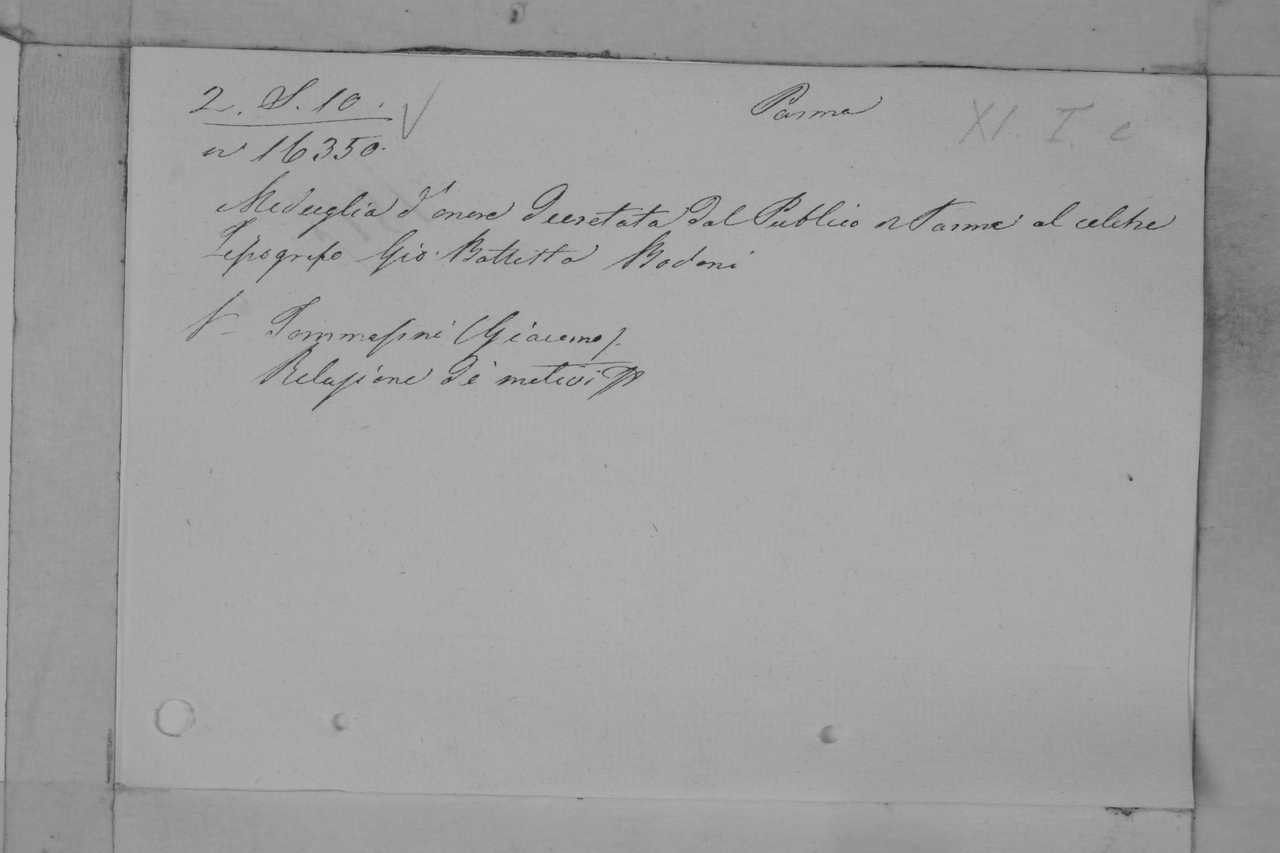 2. S. 10. Parma XI. I. c
n° 16350.
Medaglia d'onore decretata dal Publico di Parma al celebre
Tipografo Gio. Battista Bodoni
V- Tommasini (Giacomo).
Relazione de motivi